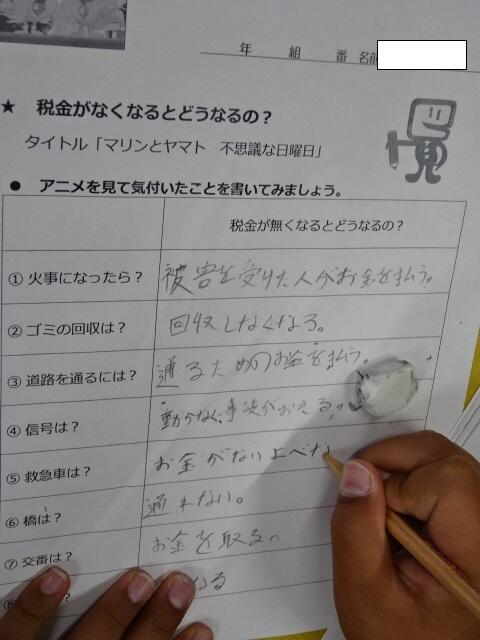 年 組 番 名前
★ 税金がなくなるとどうなるの?
タイトル「マリンとヤマト 不思議な日曜日」
● アニメを見て気付いたことを書いてみましょう。
税金が無くなるとどうなるの?
① 火事になったら? 被害を受けた人がお金を払う。
② ゴミの回収は? 回収しなくなる。
③ 道路を通るには? 通るためのお金を払う。
④ 信号は? 動かない、事故がおきる。
⑤ 救急車は? お金がない
⑥ 橋は? 通れない。
⑦ 交番は? お金を取る。
⑧ ?